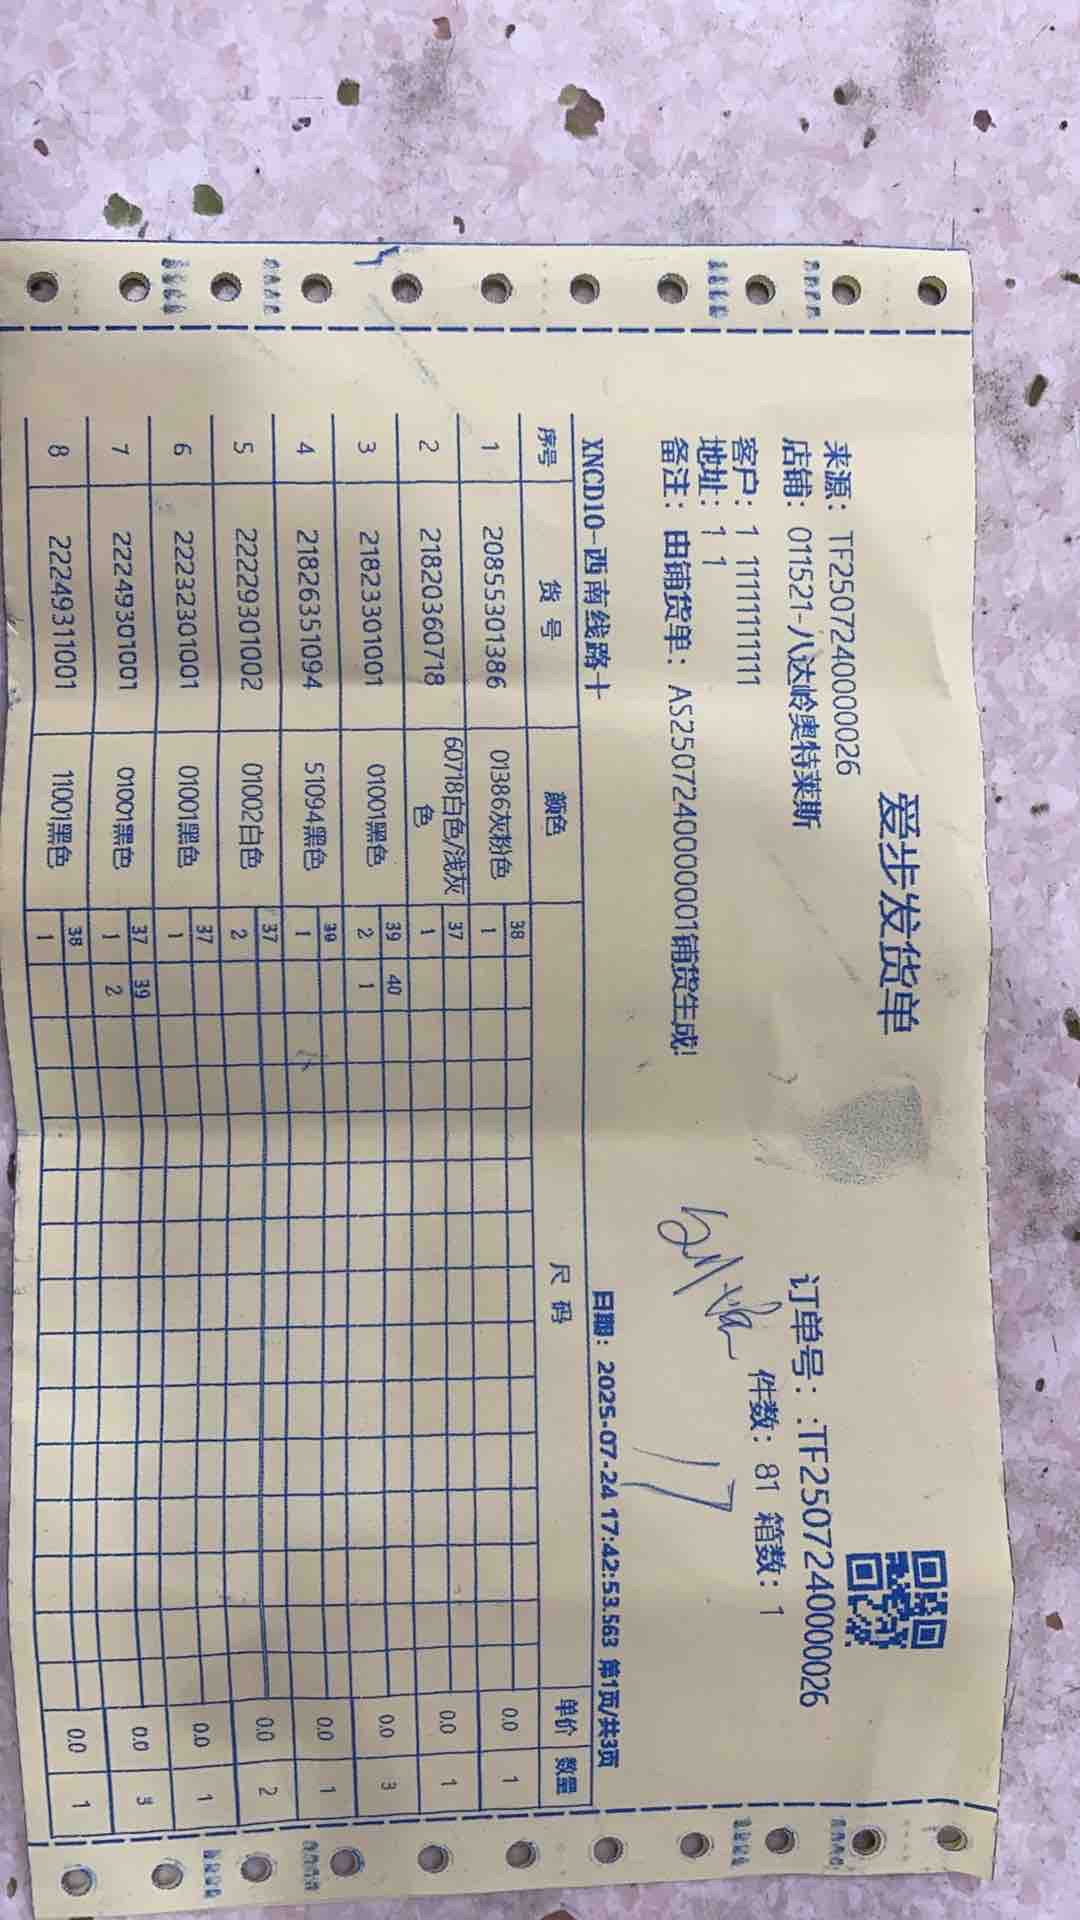 爱步发货单
来源：TF250724000026
订单号：:TF250724000026
店铺：011521-八达岭奥特莱斯
件数：81 箱数：1
客户：1 11111111111
地址：1 1
备注：由铺货单：AS250724000001铺货生成!
17
XNCD10-西南线路十
日期：2025-07-24 17:42:53.563 第1页/共3页
序号 货 号 颜色 尺 码 单价 数量
38
1 20855301386 01386灰粉色 1 0.0 1
37
2 21820360718 60718白色/浅灰色 1 0.0 1
39 40
3 21823301001 01001黑色 2 1 0.0 3
39
4 21826351094 51094黑色 1 0.0 1
37
5 22229301002 01002白色 2 0.0 2
37
6 22232301001 01001黑色 1 0.0 1
37 39
7 22249301001 01001黑色 1 2 0.0 3
38
8 22249311001 11001黑色 1 0.0 1